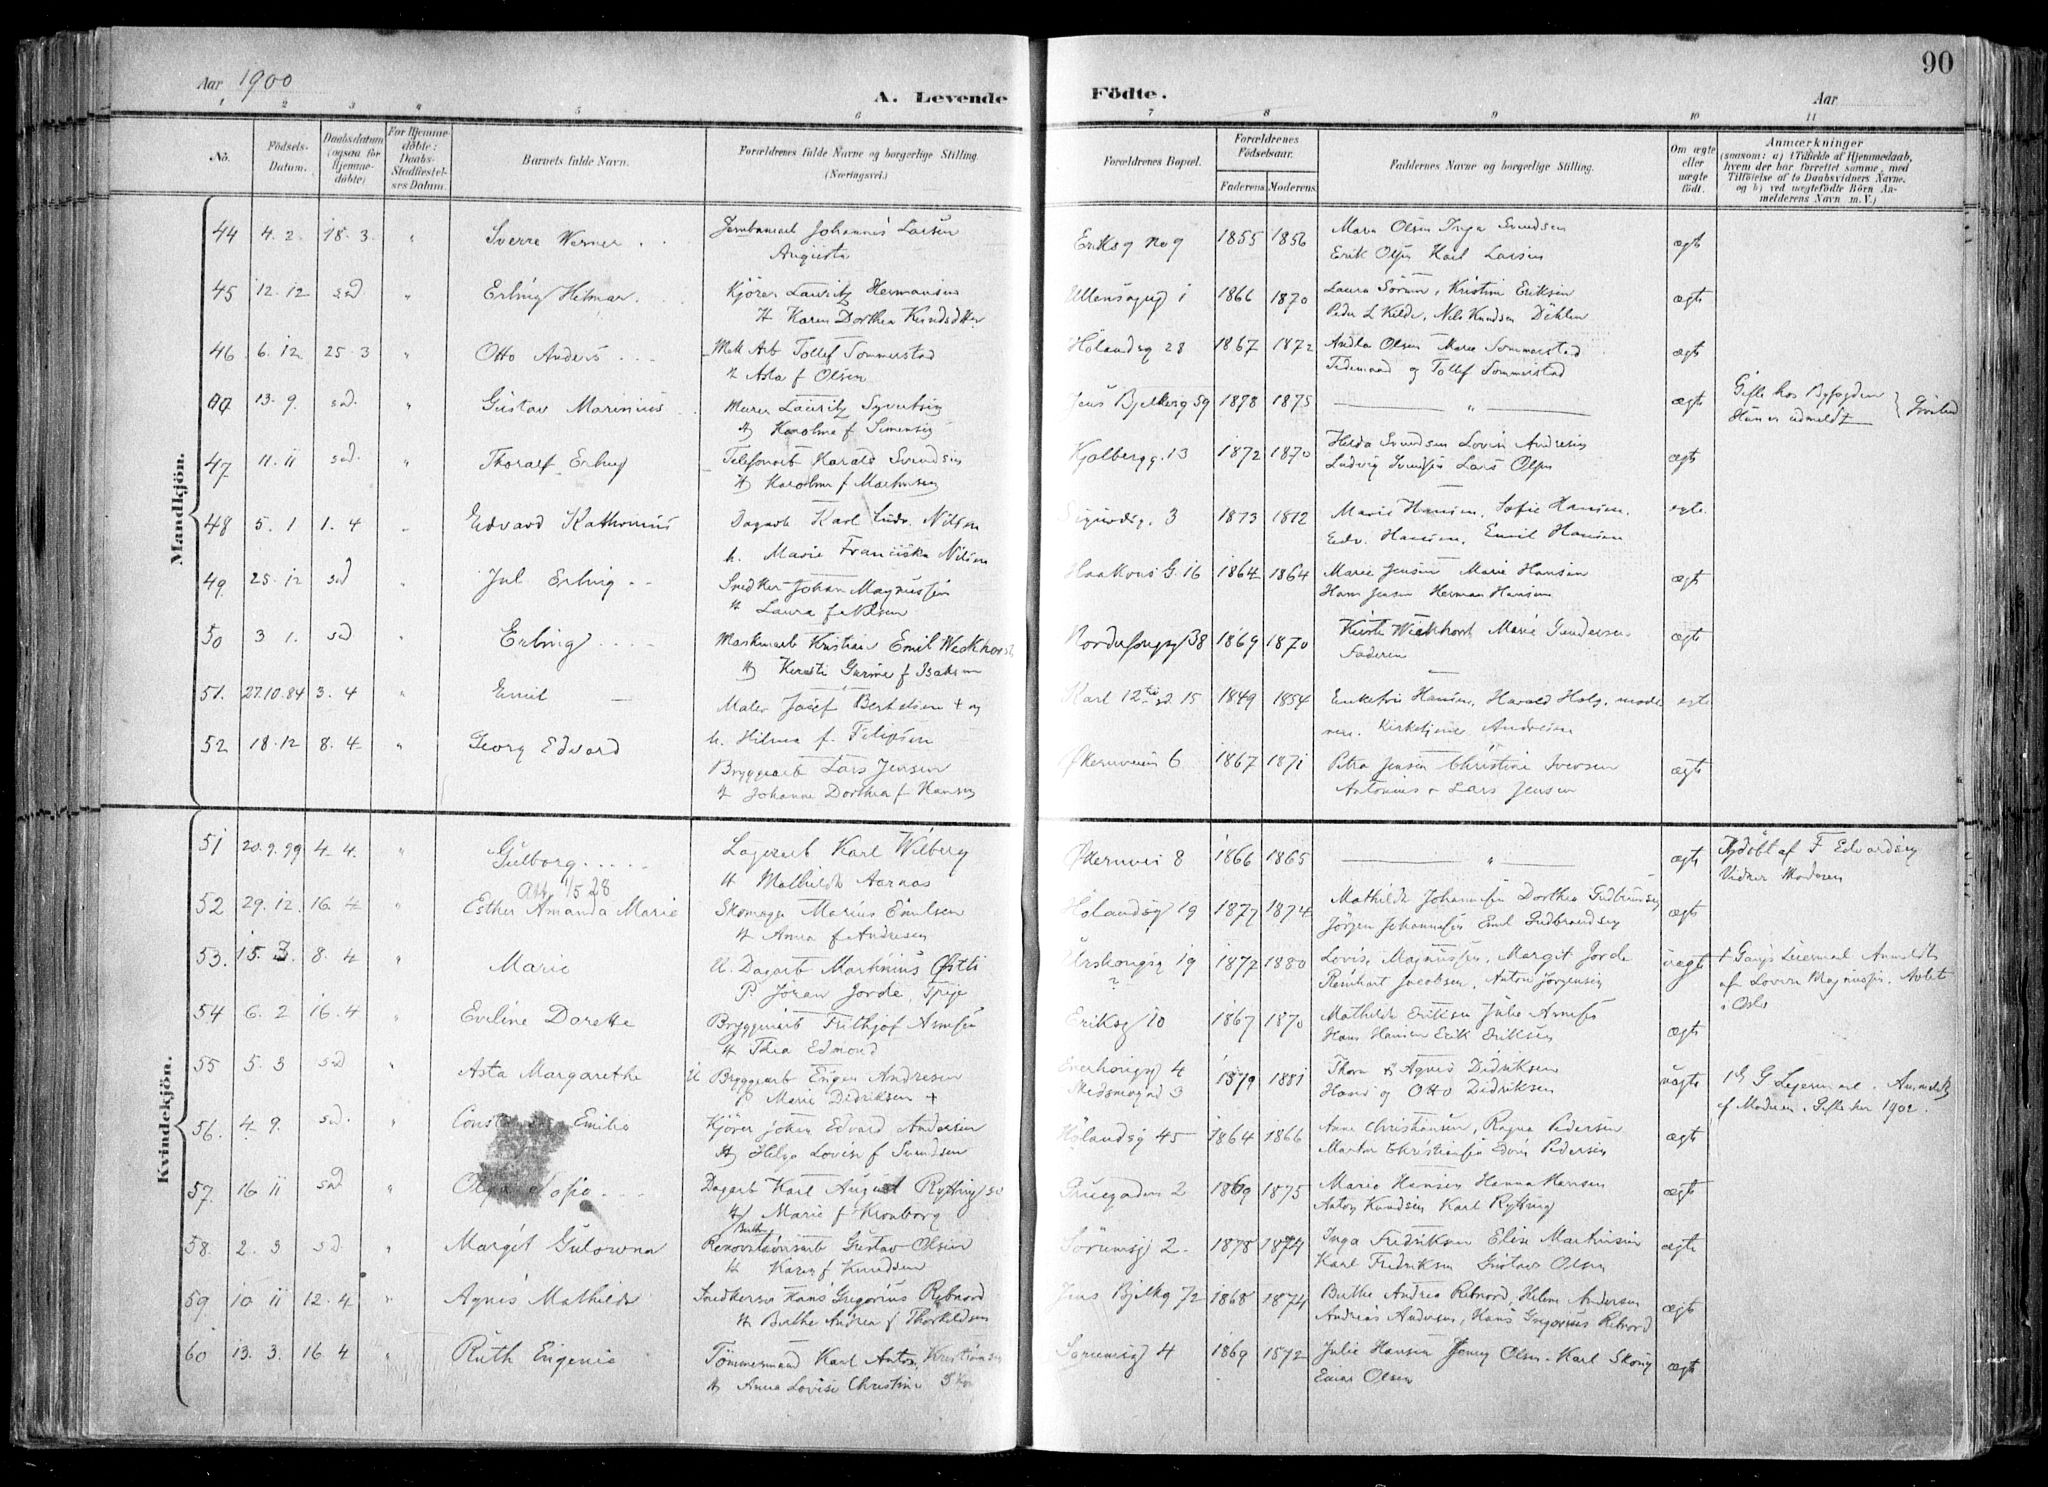 90
Aar 1900
A. Levende Födte.
Aar
1 2 3 4 5 6 7 8 9 10 11
No.
Födsels-Datum.
Daabsdatum (ogsaa for Hjemmedöbte)
For Hjemmedöbte: Daabs-Stadfæstelses Datum.
Barnets fulde Navn.
Forældrenes fulde Navne og borgerlige Stilling. (Næringsvei.)
Forældrenes Bopæl.
Forældrenes Födselsaar.
Faderens Moderens
Faddernes Navne og borgerlige Stilling.
Om ægte eller uægte födt.
Anmærkninger (saasom: a) i Tilfælde af Hjemmedaab, hvem der har forrettet samme, med Tilföielse af to Daabsvidners Navne, og b) ved uægtefödte Börn Anmelderens Navn m. V.)
Mandkjön.
44 4. 2. 18. 3. " Sverre Werner Johannes Larsen
Augusta
Eriksg No 9 1855 1856 Inga Svendsen
Erik Olsen Karl Larsen ægt
45 12. 12 sad " Erling Hilmar Kjörer Lauritz Hermansen
H Karen Dorthea Knudsdtter
1 1866 1870 Laura Sörum, Kristine Eriksen
Nils Knudsen ægt
46 6. 12 25. 3 " Otto Anders Mek Arb Tollef Sommerstad
H Asta f Olsen
Hölandsg 28 1867 1872 Olsen Marie Sommerstad
og Tollef Sommerstad ægt
13. 9. sad. " Gustav Marinius Murer Lauritz Syvertsen
H Karoline f Simensen
Jens Bjelkesg 59 1878 1875 " ægt
Gifte hos Byfogden
47 11. 11 sad. " Thoralf Erling Telefonarb Harald Svendsen
H Karoline f Martinsen
Kjølbergg. 13 1872 1870 Hilda Svendsen Lovise Andresen
Ludvig Svendsen Lars Olsen ægt
48 5. 1 1. 4 Edvard Dagarb Karl Ludv. Nilsen
h. Marie Franciska Nilsen
Sigurdsg. 3 1873 1872 Marie Hansen, Sofie Hansen.
Edv. Hansen, Emil Hansen egte.
49. 25. 12 sad " Jul Erling Snedker Johan Magnussen
H Laura f Nilsen
Haakons G. 16 1864 1864 Marie Jensen Marie Hansen
Hans Jensen Herman Hansen ægt
50 3 1. sad " Erling Maskinarb Kristian Emil Weckhorst
H Kirsti Gurine f Isaksen
38 1869 1870 Kirsti Weckhorst Marie Gundersen
Faderen ægt
51. 27.10.84 3. 4 " Emil Maler Josef Berthelsen + og
h. Hilma f. Filipsen
Karl 12tes g. 15 1849 1854 Enkefru Hansen, Harald Holg. mode
ren. Kirketjener Andresen egte
52 18. 12 8. 4 " Georg Edvard
Bryggearb Lars Jensen
H Johanne Dorthea f Hansen
Økernveien 6 1867 1871 Petra Jensen Christine Iversen
Antonius o Lars Jensen ægt
Kvindekjön.
51 20. 9. 99 4. 4. " Gulborg Lagerarb Karl Wilberg
H Mathilde Aarnas
Økernvei 8 1866 1865 " ægt
af F Edvardsen
Vidner Moderen
Att 1/5 28
52 29. 12. 16. 4 " Esther Amanda Marie Skomager Marius Emilsen
H Anna f Andresen
Hölandsg 19 1877 1874 Mathilde Johannesen Dorthea Gudbrandsen
Jörgen Johannesen Emil Gudbrandsen ægt
53. 15. 3. 8. 4 " Marie U. Dagarb Martinius Østli
P. Jöran Jorde, Tpige
Urskougsg 19 1877 1880 Lovise Magnussen, Margit Jorde
Reinhart Jacobsen, Anton Jørgensen uægt
Gangs Leiermaal Anmeldt
af Lovise Magnussen. Avlet
i Oslo
54 6. 2 16. 4 " Eveline Dorette Bryggearb Frithjof Arnesen
H Thea Edmond
Eriksg 10 1867 1870 Mathilde Eriksen Julie Arnesen
Hans Hansen Erik Eriksen ægt
55 5. 3 sad " Asta Margarethe U Bryggearb Eugen Andresen
P Marie Didriksen +
Enerhougsg 4
3 1879 1881 Thora & Agnes Didriksen
og Otto Didriksen uægt
1ste G Lejermaal. Anmeldt
af Moderen. Gifte her 1902.
56. 4. 9. sad. " Emilie Kjörer Johan Edvard Andersen
H Helga Lovise f Svendsen
Hölandsg 45 1864 1866 Anne Christiansen, Ragna Pedersen
Martin Christiansen Edvin Pedersen ægt
57. 16 11 sad " Olga Sofie Dagarb Karl August Rytting
H Marie f Kronborg
Gruegaden 2 1869 1875 Marie Hansen Hanna Hansen
Anton Knudsen Karl Rytting ægt
58. 2. 3 sd. " Margit Gulowna Renovationsarb Gustav Olsen
H Karen f Knudsen
Sörumsg 2. 1878 1874 Inga Fredriksen Elise Martinsen
Karl Fredriksen Gustav Olsen ægte
59. 10 11 12. 4 " Agnes Mathilde Snedkersv Hans Gregorius Rebnord
H Berthe Andrea f Thorkildsen
Jens Bjelkg 72 1868 1874 Berthe Andrea Rebnord, Helene Andersen
Andreas Andersen, Hans Gregorius Rebnord ægt
60 13. 3. 16. 4 " Ruth Eugenie Tömmermand Karl Anton Kristiansen
H Anna Lovise Christine
Sörumsg 4 1869 1872 Julie Hansen Jenny Olsen. Karl Skoug
Einar Olsen ægt